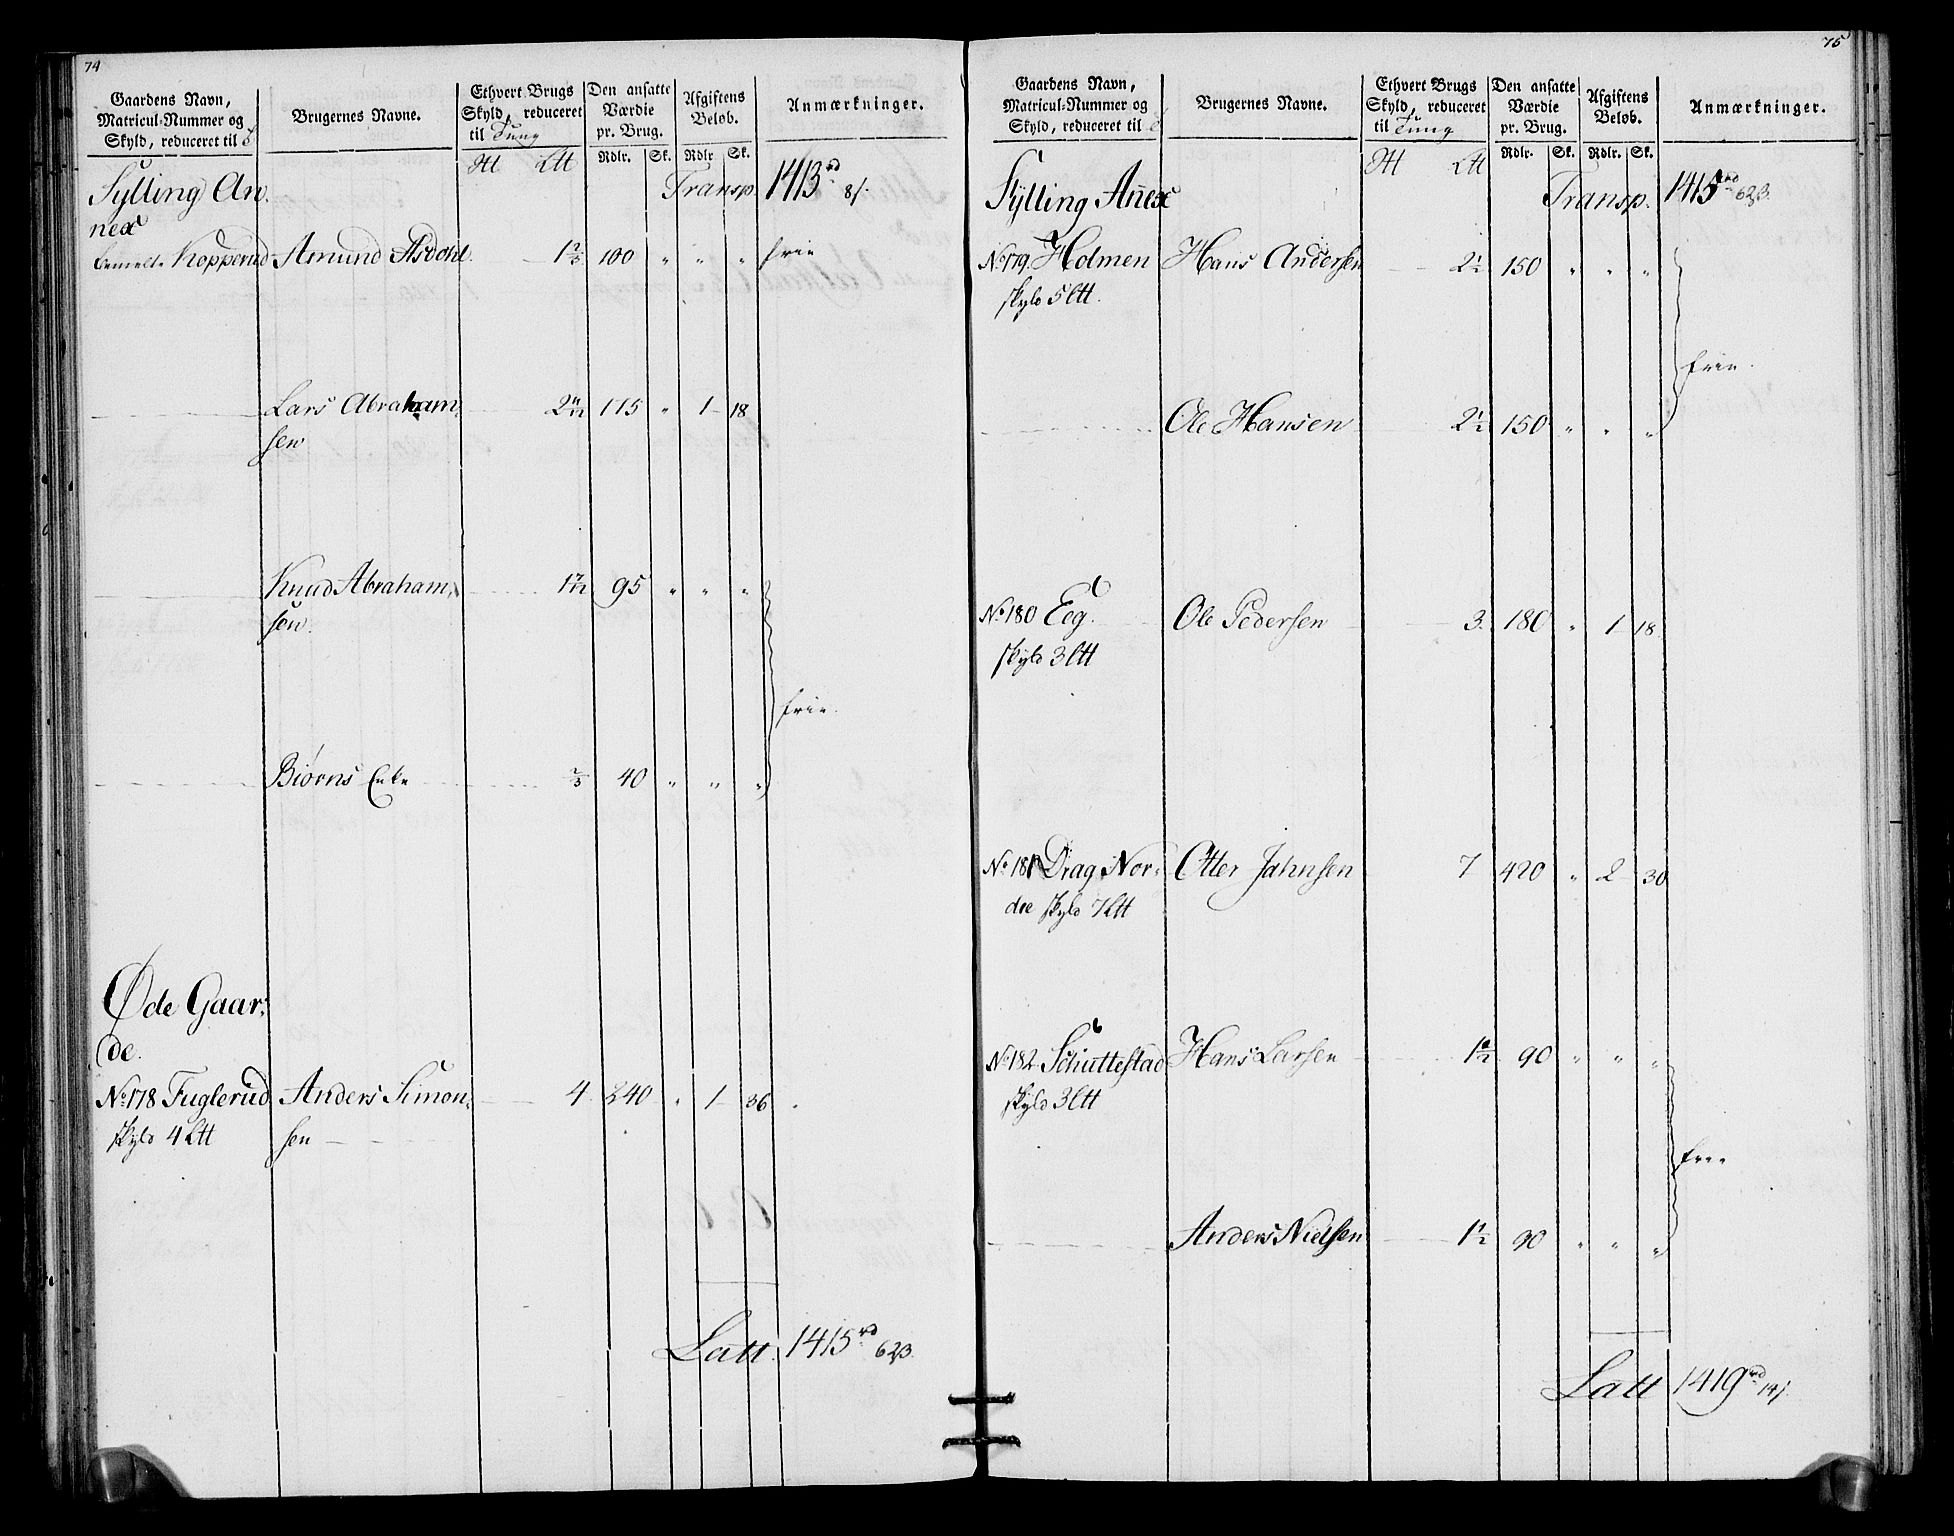 74
Gaardens Navn,
Matricul-Nummer og
Skyld, reduceret til
Brugernes Navne.
Ethvert Brugs
Skyld, reduceret
til Tung
Den ansatte
Værdie
pr. Brug.
Rdlr. Sk.
Afgiftens
Beløb.
Rdlr. Sk.
Anmærkninger.
Sylling An
nex
Transp. 1413 rd 8 s.
bemeldte Kopperud Amund Asdohl 1 2/3 100 " " " frie
Lars Abraham
sen 2 11/12 175 " 1 18
Knud Abraham,
sen. 1 7/12 95 " " "
frie.
Biørns Enke 2/3 40 " " "
Øde Gaar,
de.
No. 178 Fuglerud Anders Simon, 4 240 " 1 36
skyld 4 Ltt sen
Latt. 1415 rd 62 s.
75
Gaardens Navn,
Matricul-Nummer og
Skyld, reduceret til
Brugernes Navne.
Ethvert Brugs
Skyld, reduceret
til Tung
Den ansatte
Værdie
pr. Brug.
Rdlr. Sk.
Afgiftens
Beløb.
Rdlr. Sk.
Anmærkninger.
Sylling Anex
Transp. 1415 rd 62 s.
No. 179. Holmen Hans Andersen 2 1/2 150 " " "
skyld 5 Ltt.
frie.
Ole Hansen 2 1/2 150 " " "
No. 180 Eeg. Ole Pedersen 3. 180 " 1 18
skyld 3 Ltt
No. 181 Drag Nor, Otter Jahnsen 7 420 " 2 30
dre skyld 7 Ltt
No. 182. Schuttestad Hans Larsen 1 1/2 90 " " "
skyld 3 Ltt
frie
Anders Nielsen 1 1/2 90 " " "
Latt 1419 rd 14 s.